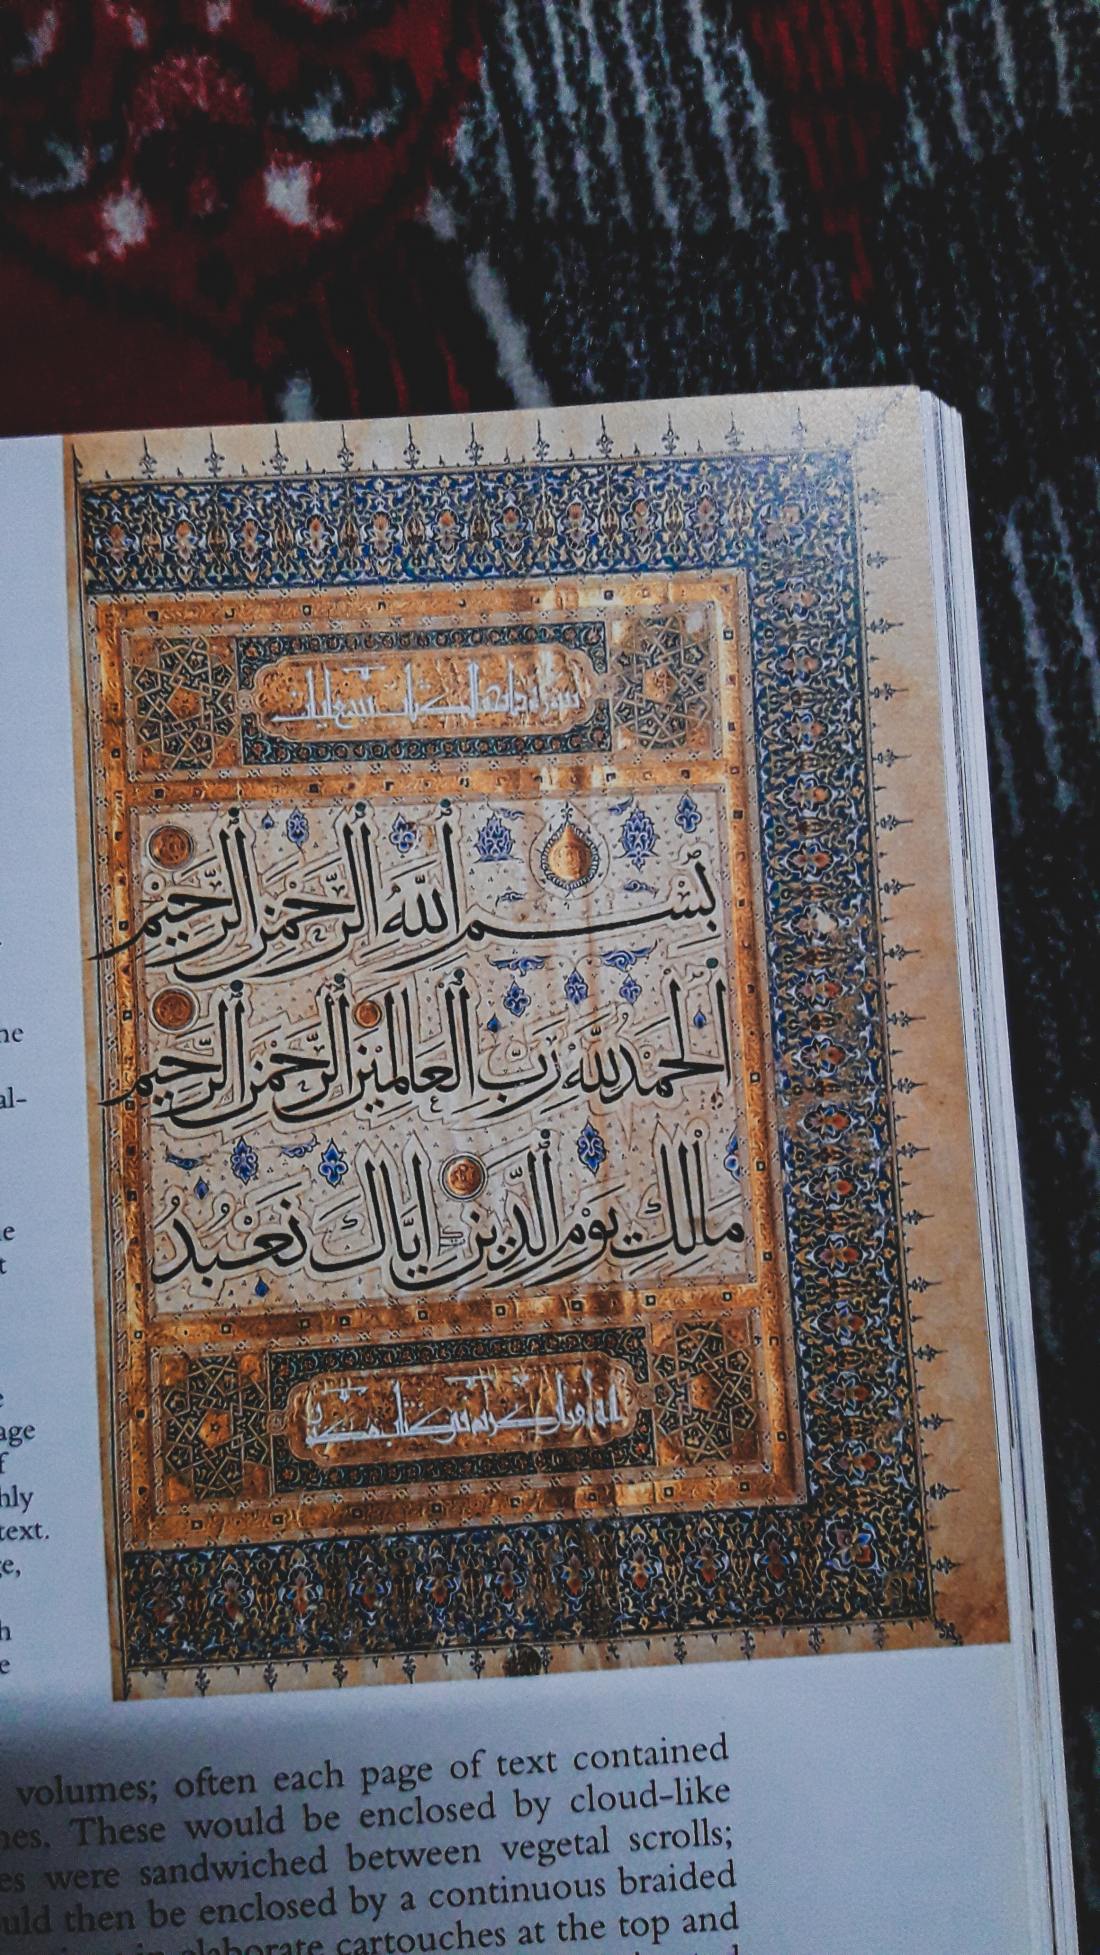 سورة فاتحة الكتاب سبع ايات
بِسْمِ اللهِ الرَّحْمٰنِ الرَّحِيْمِ
الْحَمْدُ لِلّٰهِ رَبِّ الْعَالَمِيْنَ الرَّحْمٰنِ الرَّحِيْمِ
مَالِكِ يَوْمِ الدِّيْنِ اِيَّاكَ نَعْبُدُ
he
al-
e
t
e
age
f
hly
text.
e,
h
e
volumes; often each page of text contained
nes. These would be enclosed by cloud-like
es were sandwiched between vegetal scrolls;
uld then be enclosed by a continuous braided
elaborate cartouches at the top and